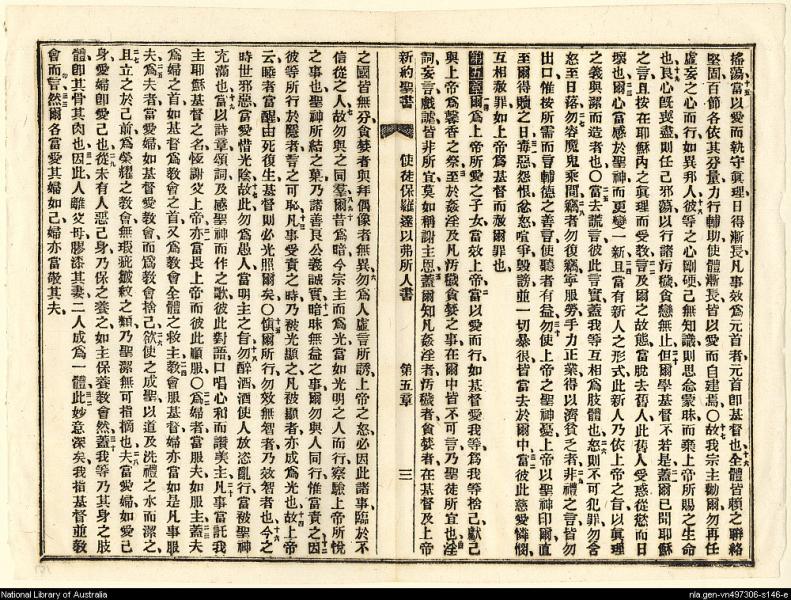 搖蕩當以愛而執守眞理日得漸長凡事效爲元首者元首卽基督也全體皆賴之聯絡
堅固百節各依其分量力行輔助使體漸長皆以愛而自建焉○故我宗主勸爾勿再任
虛妄之心而行如異邦人彼等之心剛硬己無知識則思念蒙昧而棄上帝所賜之生命
也良心旣喪盡則任己邪蕩以行諸汚穢貪婪無止但爾學基督不若是蓋爾已聞耶穌
之言且按在耶穌內之眞理而受敎言及爾之故態當脫去舊人此舊人受惑從慾而日
壞也爾心當感於聖神而更變一新且當有新人之形式此新人乃依上帝之旨以眞理
之義與潔而造者也○當去謊言彼此言實蓋我等互相爲肢體也怒則不可犯罪勿含
怒至日落勿容魔鬼乘間竊者勿復竊寧服勞手力正業得以濟貧乏者非禮之言皆勿
出口惟按所需而言輔德之善言使聽者有益勿使上帝之聖神憂上帝以聖神印爾直
至爾得贖之日毒惡怨恨忿怒喧爭毀謗並一切暴很皆當去於爾中當彼此慈愛憐憫
互相赦罪如上帝爲基督而赦爾罪也
第五章爾爲上帝所愛之子女當效上帝當以愛而行如基督愛我等爲我等捨己獻己
與上帝爲馨香之祭至於姦淫及凡汚穢貪婪之事在爾中皆不可言乃聖徒所宜也淫
詞妄言戲謔皆非所宜莫如稱謝主恩蓋爾知凡姦淫者汚穢者貪婪者在基督及上帝
新約聖書 使徒保羅達以弗所人書 第五章 三
之國皆無分貪婪者與拜偶像者無異勿爲人虛言所誘上帝之怒必因此諸事臨於不
信從之人故勿與之同羣爾昔爲暗今宗主而爲光當如光明之人而行察驗上帝所悅
之事也聖神所結之菓乃諸善良公義誠實暗昧無益之事爾勿與人同行惟當責之因
彼等所行於隱者言之可恥凡事受責之時乃被光顯之凡被顯者亦成爲光也故上帝
云睡者當醒由死復生基督則必光照爾矣○愼爾所行勿效無智者乃效智者也今之
時世邪惡當愛惜光陰故此勿爲愚人當明主之旨勿醉酒酒使人放恣亂行當被聖神
充滿也當以詩章頌詞及感聖神而作之歌彼此對語口唱心和而讚美主凡事當託我
主耶穌基督之名恆謝父上帝亦當畏上帝而彼此順服○爲婦者當服夫如服主蓋夫
爲婦之首如基督爲敎會之首又爲敎會全體之救主敎會服基督婦亦當如是凡事服
夫爲夫者當愛婦如基督愛敎會而爲敎會捨己欲使之成聖以道及洗禮之水而潔之
且立之於己前爲榮耀之敎會無瑕疵皺紋之類乃聖潔無可指摘也夫當愛婦如愛己
身愛婦卽愛己也從未有人惡己身乃保之養之如主保養敎會然蓋我等乃其身之肢
體卽其骨其肉也因此人離父母膠漆其妻二人成爲一體此妙意深矣我指基督並敎
會而言然爾各當愛其婦如己婦亦當敬其夫
National Library of Australia
nla.gen-vn497306-s146-e